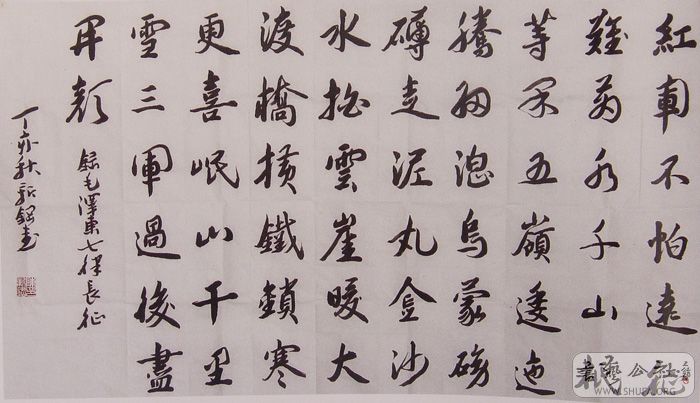 紅軍不怕遠
難萬水千山
等閑五嶺逶迤
騰細浪烏蒙磅
礴走泥丸金沙
水拍雲崖暖大
渡橋橫鐵鎖寒
更喜岷山千里
雪三軍過後盡
開顏
錄毛澤東七律長征
丁亥秋 書
書藝公社
WWW.SHUFA.ORG